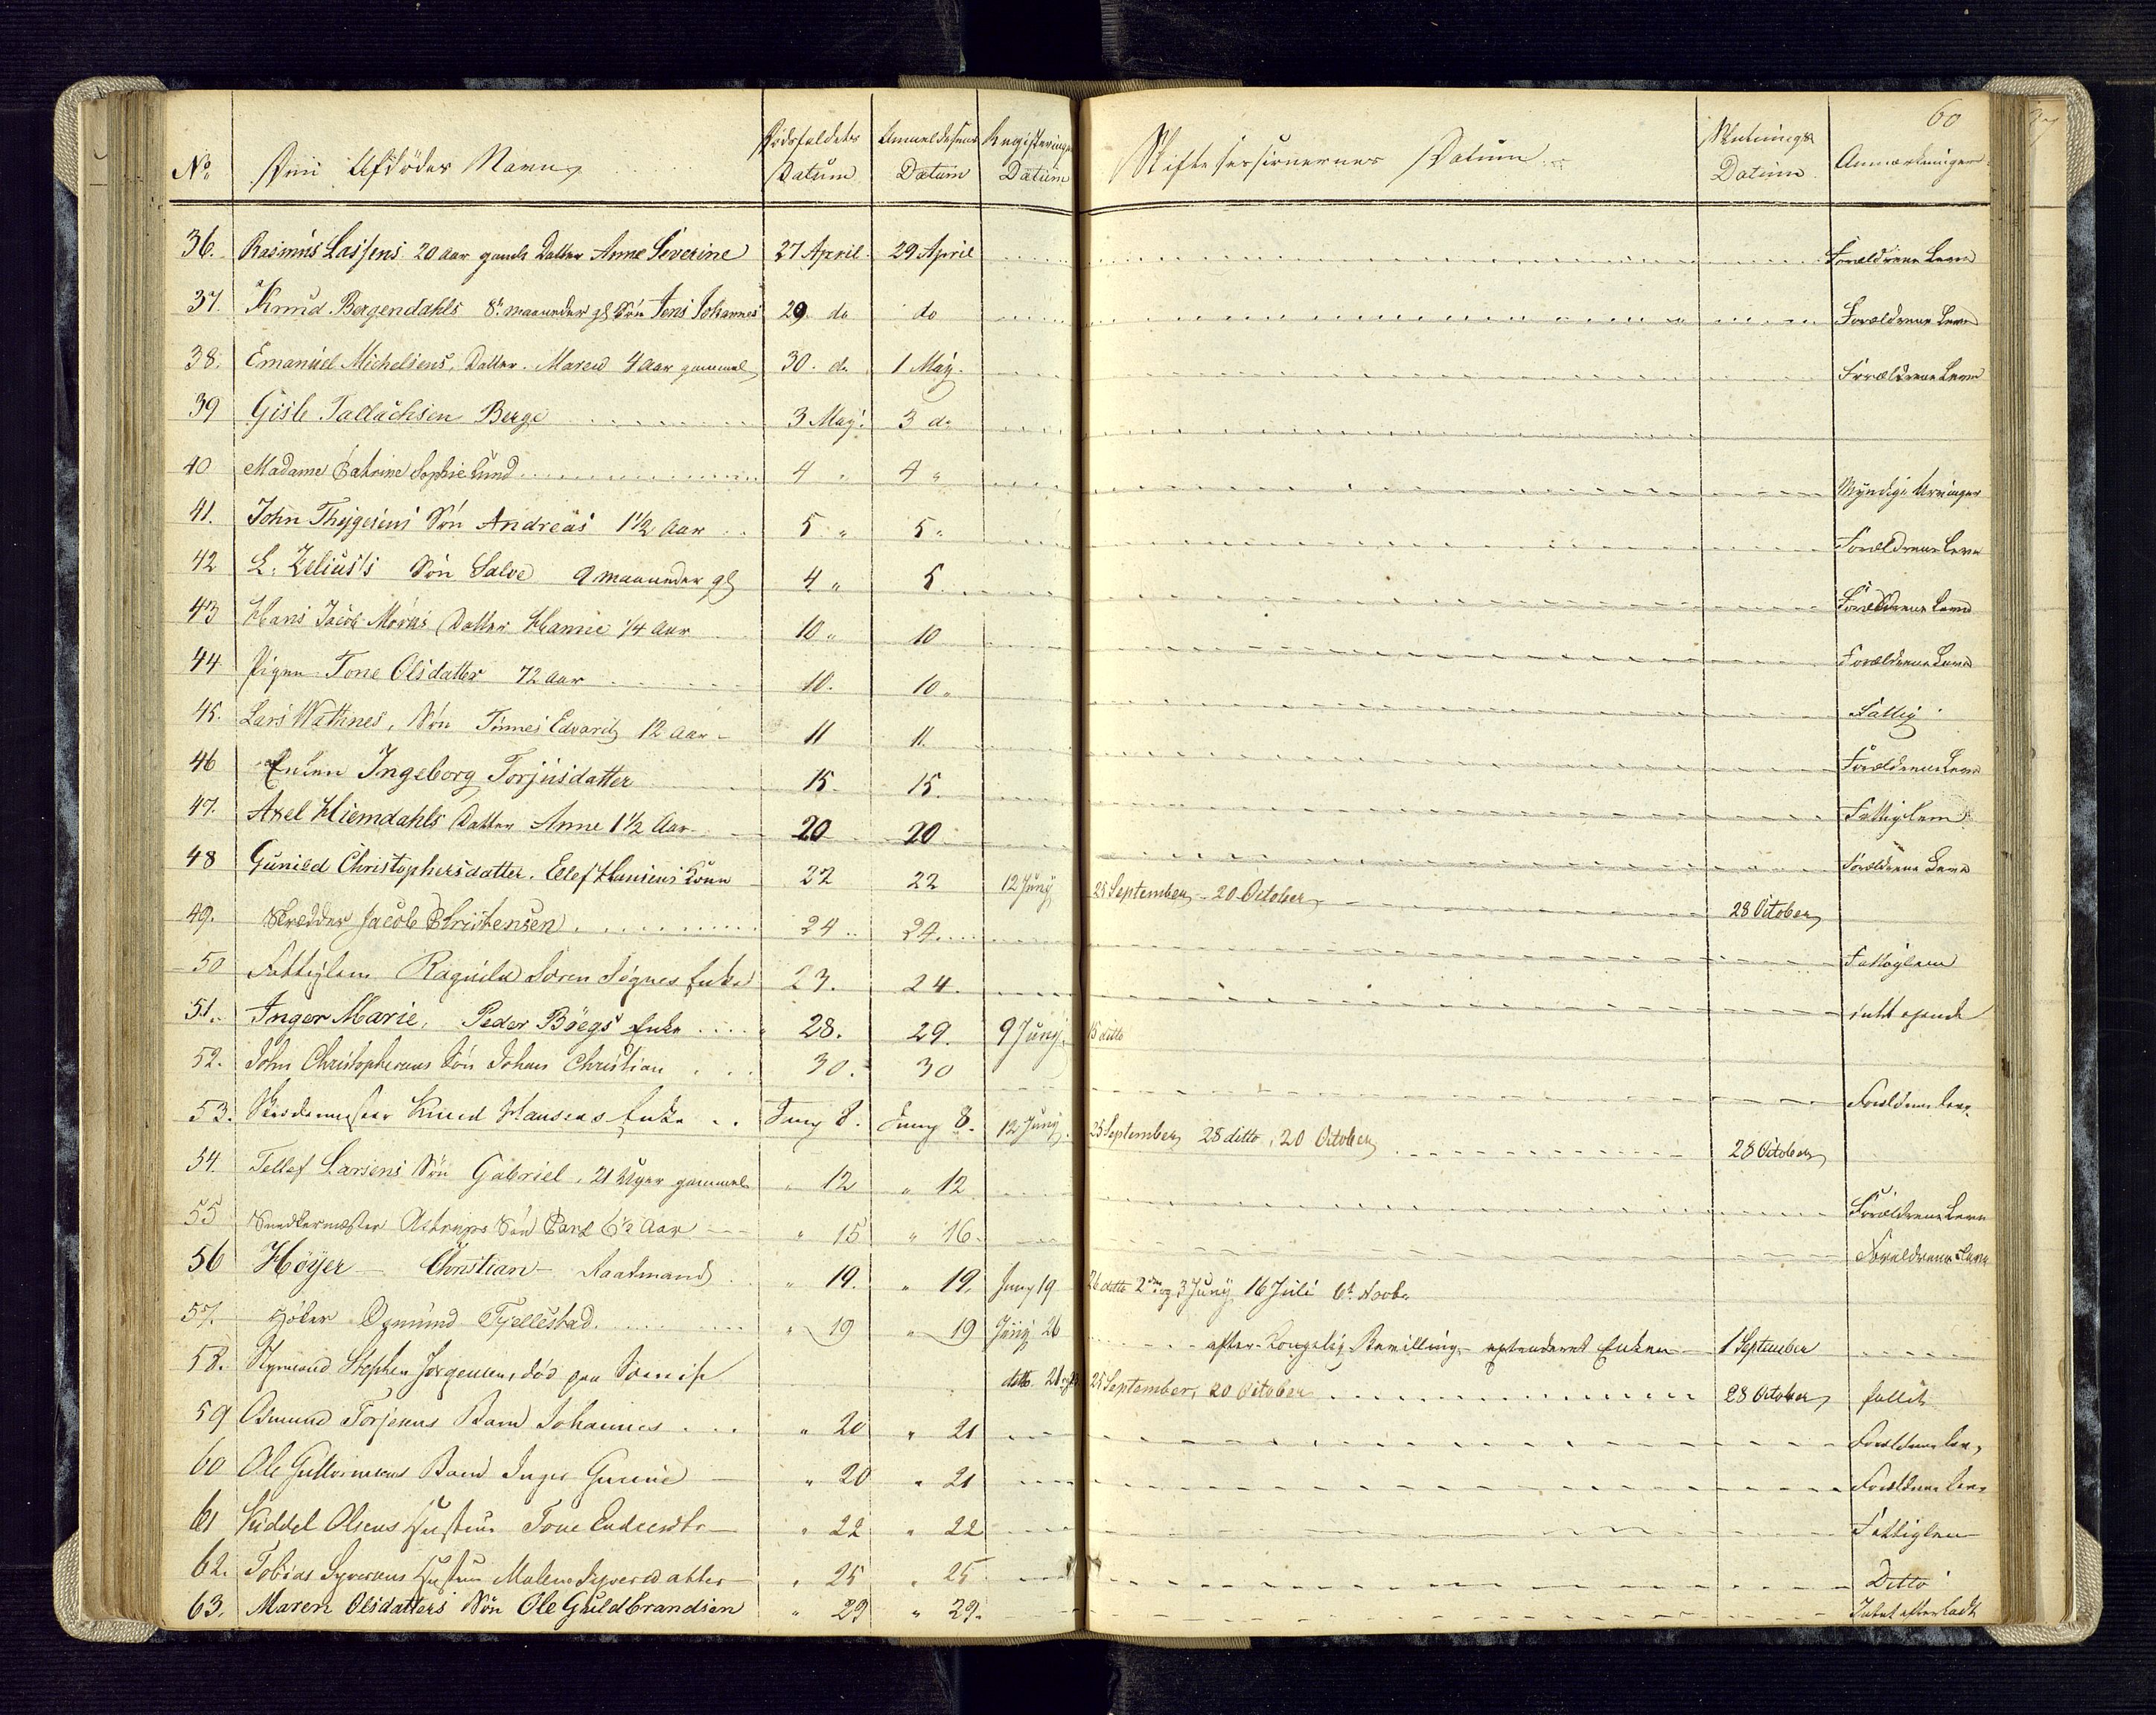 60
No. Den Afdødes Navn Dødsfaldets Datum Anmeldelsens Datum Registerings Datum Skiftesessionernes Datum Slutnings Datum Anmærkninger
36. Rasmus Lassens 20 Aar gamle Datter Anne Severine 27 April 29 April Forældrene Leve
37. Knud Bergendahls 8 maaneder gl Søn Jens Johannes 29 do do Forældrene Leve
38. Emanuel Michelsens Datter Maren 4 Aar gammel 30. do 1 May. Forældrene Leve
39 Gisle Tallachsen Berge 3 May. 3 do
40 Madame Catrine Sophie Lund 4 " 4 " Myndige Arvinger
41. John Thygesens Søn Andreas 1½ Aar 5 " 5 " Forældrene Leve
42 L. Zelius's Søn Salve 9 maaneder gl 4 " 5 Forældrene Leve
43 Hans Jacob Mørks Datter Hanne 1/4 Aar 10 " 10 Forældrene Leve
44 Pigen Tone Olsdatter 72 Aar 10. 10 " Fattig
45. Lars Wathnes, Søn Tinnes Edvard 12 Aar 11 11. Forældrene Leve
46 Enken Ingeborg Torjusdatter 15. 15. Fattiglem
47. Axel Hiemdahls Datter Anne 1½ Aar 20 20 Forældrene Leve
48 Gunild Christophersdatter. Ellef Hansens Kone 22 22 12 Juny 25 September 20 October 28 October
49. Skrædder Jacob Christensen 24 24 Fattiglem
50 Fattiglem Ragnild Søren Søgnes Enke 23. 24. intet ejende
51. Inger Marie, Peder Bøegs Enke 28. 29. 9 Juny. 15 ditto
52. John Christophersens Søn Johan Christian 30. 30 Forældrene leve
53. Knud Hansens Enke Juny 8. Juny 8. 12 Juny. 25 September, 28 ditto, 20 October 28 October
54. Tellef Larsens Søn Gabriel, 21 Uger gammel " 12 " 12 Forældrene Leve
55 Snedkermester Astrups Søn Carl 6½ Aar " 15 " 16 Forældrene Leve
56 Høyer Christian Raadmand " 19. " 19. Juny 19 26 ditto 2den og 3 Juny 16 Juli 6te Novbr
57. Høker Ogmund Fjellestad " 19 " 19 Juny 26 efter Kongelig Bevilling Enken 1 September
58. Styrmand Stephen Jørgensen, død paa Søreise ditto 25 September, 20 October 28 October fallit
59 Osmund Torjesens Barn Johannes " 20 " 21 Forældrene leve
60 Ole Guttormsens Barn Inger Gurine " 20 " 21 Forældrene leve
61 Kiddel Olsens Hustru Tone " 22 " 22 Fattiglem
62. Tobias Syversens Hustru Malene Syversdatter " 25 " 25 Ditto
63. Maren Olsdatters Søn Ole Guldbrandsen " 29 " 29. Intet efterladt